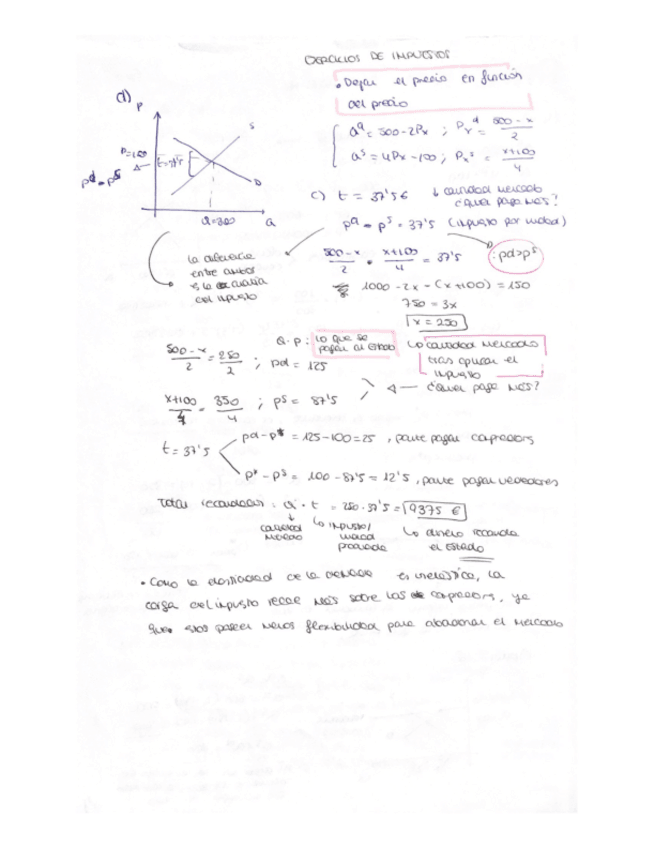 EJERCICIOS DE IMPUESTOS
• Dejar el precio en función
del precio
d) P
S
P=100
t=37'5
pd - ps
D
Q=300
Q
Qd = 500 - 2Px ; Pxd = 500 - x / 2
Qs = 4Px - 100 ; Pxs = x + 100 / 4
c) t = 37'5€ ↓ cantidad mercado
¿Quien paga más?
pd - ps = 37'5 (impuesto por unidad)
la diferencia
entre ambos
es la cuantía
del impuesto
500 - x / 2 - x + 100 / 4 = 37'5
: pd > ps
1000 - 2x - (x + 100) = 150
750 = 3x
x = 250
Q · P : lo que se
pagan al Estado
↳ cantidad mercado
tras aplicar el
impuesto
500 - x / 2 = 250 / 2 ; pd = 125
¿Quien paga más?
x + 100 / 4 = 350 / 4 ; ps = 87'5
t = 37'5
pd - p* = 125 - 100 = 25 , parte pagan compradores
p* - ps = 100 - 87'5 = 12'5 , parte pagan vendedores
Total recaudado : Q · t = 250 · 37'5 = 9375 €
↓ cantidad
mercado
↳ impuesto/
unidad
producida
↳ dinero recauda
el Estado
• Como la elasticidad de la demanda es inelástica, la
carga del impuesto recae más sobre los compradores, ya
que estos poseen menos flexibilidad para abandonar el mercado